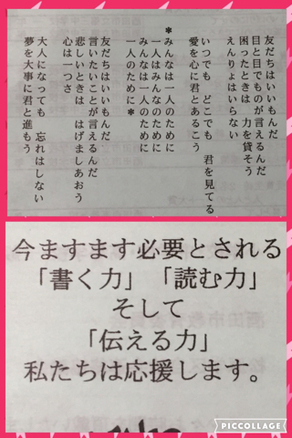 友だちはいいもんだ
目と目でものが言えるんだ
困ったときは 力を貸そう
えんりょはいらない
いつでも どこでも 君を見てる
愛を心に君とあるこう
*みんなは一人のために
一人はみんなのために
みんなは一人のために
一人のために*
友だちはいいもんだ
言いたいことが言えるんだ
悲しいときは はげましあおう
心は一つさ
大人になっても 忘れはしない
夢を大事に君と進もう
今ますます必要とされる
「書く力」「読む力」
そして
「伝える力」
私たちは応援します。
PICCOLLAGE